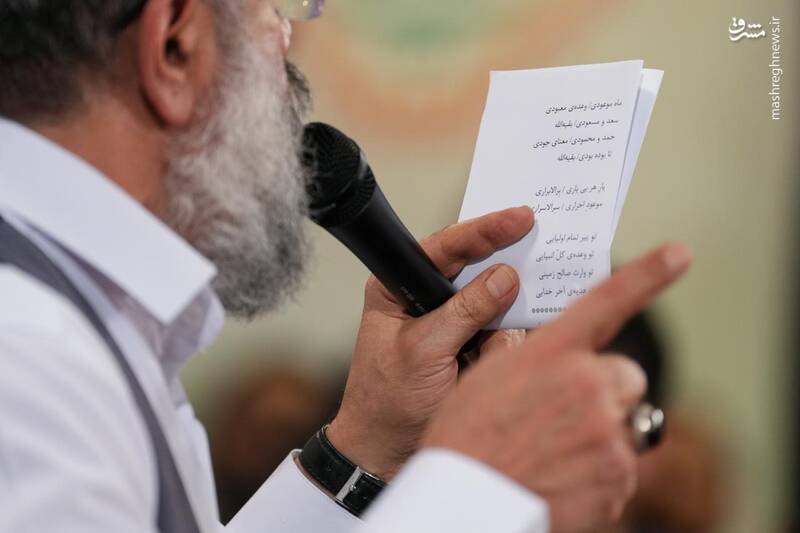 مشرق
mashreghnews.ir
ماه موعودی/ وعده‌ی معبودی
سعد و مسعودی/ بقیه‌الله
حمد و محمودی/ معنای جودی
تا بوده بودی/ بقیه‌الله
یار هر بی یاری / برالابراری
موعود احراری / سرالاسراری
تو پیر تمام اولیایی
تو وعده‌ی کلّ انبیایی
تو وارث صالح زمینی
هدیه‌ی آخر خدایی